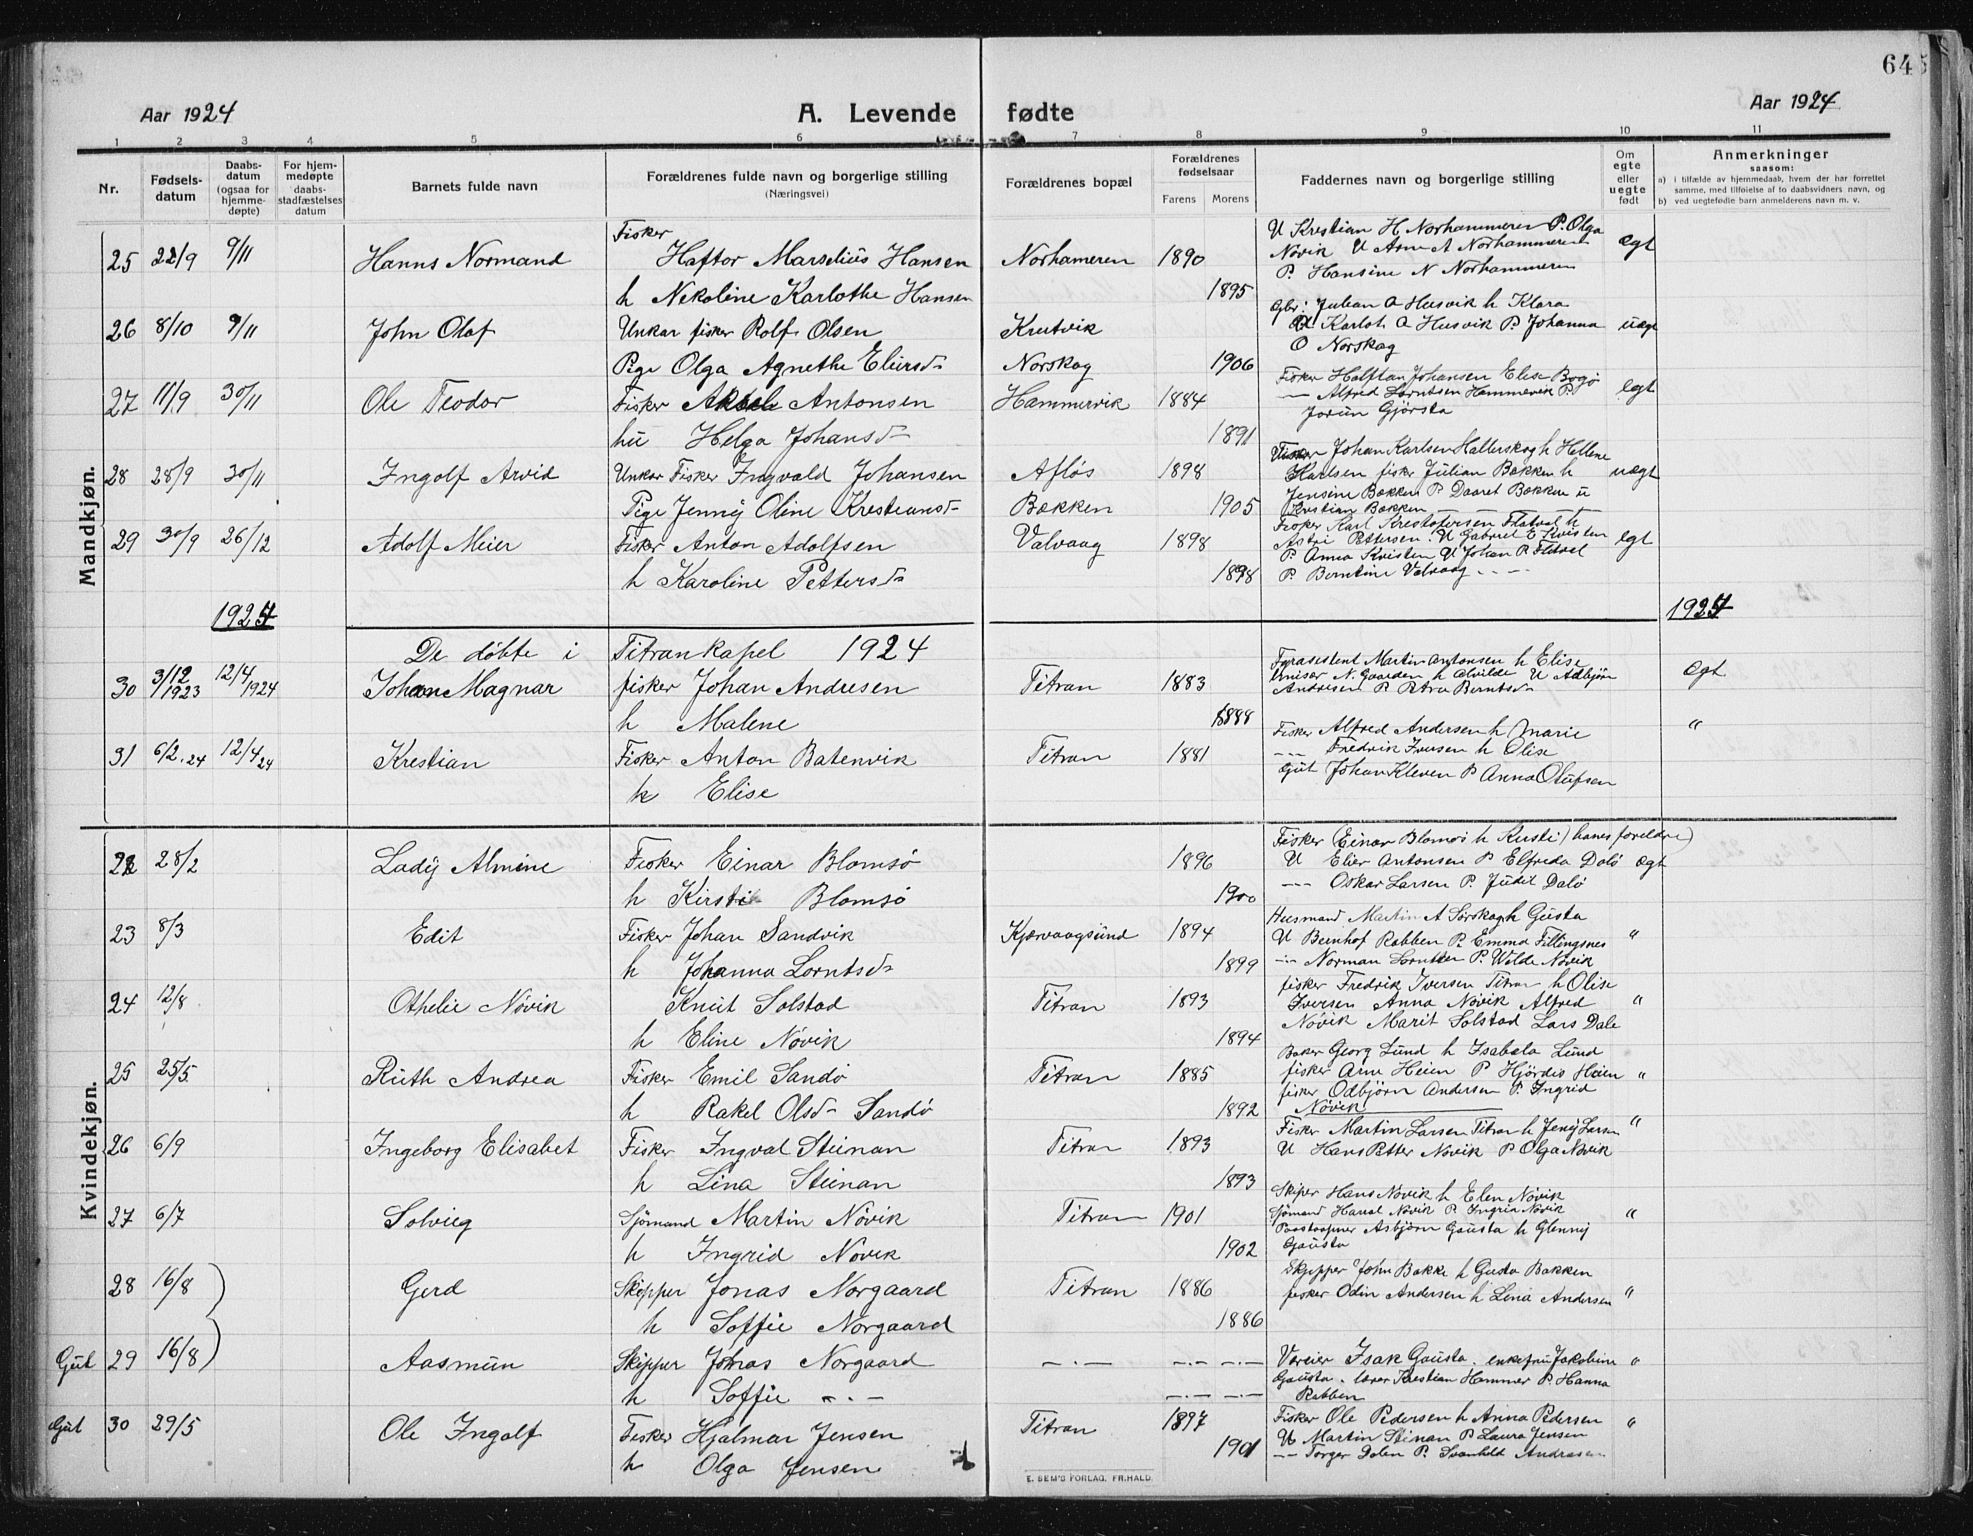 645
Aar 1924
A. Levende fødte
Aar 1924
1 2 3 4 5 6 7 8 9 10 11
Nr.
Fødsels-datum
Daabs-datum (ogsaa for hjemme-døpte)
For hjem-medøpte daabs-stadfæstelses datum
Barnets fulde navn
Forældrenes fulde navn og borgerlige stilling
(Næringsvei)
Forældrenes bopæl
Forældrenes fødselsaar
Farens Morens
Faddernes navn og borgerlige stilling
Om egte eller uegte født
Anmerkninger
saasom:
a) i tilfælde av hjemmedaab, hvem der har forrettet samme, med tilføielse af to daabsvidners navn, og
b) ved uegtefødte barn anmelderens navn m. v.
Mandkjøn.
25 22/9 9/11 Hanns Normand Fisker Haftor Marselius Hansen Norhameren 1890 U Krestian H Norhammeren P. Olga ægt
Nøvik U Arne A Norhammeren
P. Hansine N Norhammeren
h Nekoline Karlothe Hansen 1895
26 8/10 9/11 John Olaf Unkar fisker Rolf Olsen Krutvik Gbr: Julian A Husvik h Klara uægt
Karlot A Husvik P. Johanna
O Norskag
Pige Olga Agnethe Eliersd- Norskag 1906
27 11/9 30/11 Ole Teodor Fisker Antonsen Hammervik 1884 Fisker Halftan Johansen Elise Bogø egt
Alfred Lorntsen Hammervik P.
Jorun Gjørsta
hu Helga Johansd- 1891
28 28/9 30/11 Ingolf Arvid Unkar Fisker Ingvald Johansen Afløs 1898 Johan Karlsen Hallerskog h Hellene uægt
Karlsen fisker Julian Bekken h
Jensine Bekken P. Daaret Bekken u
Krestian Bekken
Pige Jenny Oline Krestiansd- Bekken 1905
29 30/9 26/12 Adolf Meier Fisker Anton Adolfsen Valvaag 1898 Fisker Karl Krestofersen Flatval h egt
Astri Pettersen. U Gabriel E Kvisten
P. Anna Kvisten U Johan P. Flatval
P. Berntine Valvaag
h Karoline Pettersd- 1898
1924 1924
De døbte i Titran kapel 1924
30 3/12 1923 12/4 1924 Johan Magnar fisker Johan Andresen Titran 1883 Fyrasestent Martin Antonsen h Elise Ægt
N. Gaarden h Alvilde U Adbjørn
Andresen P. Petra Berntsd-
h Malene 1888
31 6/2.24 12/4 24 Krestian Fisker Anton Batenvik Titran 1881 Fisker Alfred Andersen h Marie "
Fredrik Iversen h Olise
Gut Johan Kleven P Anna Olufsen
h Elise
Kvindekjøn.
22 28/2 Lady Almine Fisker Einar Blomsø 1896 Fisker (Einar Blomsø h Kirsti) hanes foreldre) ægt
U Elier Antonsen P Elfreda Dalø
Oskar Larsen P. Judit Dalø
h Kirsti Blomsø 1900
23 8/3 Edit Fisker Johan Sandvik Kjærvaagsund 1894 Husmand Martin A Sørskag h Gusta "
U Bernhof Rabben P. Emma Fillingsnes
Norman Lorntsen P. Vilde Nøvik
h Johanna Lorntsd- 1899
24 12/8 Othelie Nøvik Knut Solstad Titran 1893 fisker Fredrik Iversen Titran h Olise "
Iversen Anna Nøvik Alfred
Nøvik Marit Solstad Lars Dale
h Eline Nøvik 1894
25 25/5 Ruth Andrea Fisker Emil Sandø Titran 1885 Baker Georg Lund h Isabela Lund "
fisker Arne Heien P Hjørdis Heien
fisker Odbjørn Andersen P. Ingrid
Nøvik
h Rakel Olsd- Sandø 1892
26 6/9 Ingeborg Elisabet Fisker Ingval Steinan Titran 1893 Fisker Martin Larsen Titran h Jeny Larsen "
U Hans Petter Nøvik P Olga Nøvik
h Lina Steinan 1893
27 6/7 Solvieg Sjømand Martin Nøvik Titran 1901 Skiper Hans Nøvik h Elen Nøvik "
Sjømand Harral Nøvik P. Ingria Nøvik
Asbjørn Gausta h Glenny
Gausta
h Ingrid Nøvik 1902
28 16/8 Gerd Skipper Jonas Norgaard Titran 1886 Skipper John Bakke h Gusta Bakken "
fisker Odin Andersen h Lina Andersen
h Soffie Norgaard 1886
Gut 29 16/8 Aasmun Skipper Jonas Norgaard —.— —.— —.— Væreier Isak Gausta. enkefru Jakobine "
Gausta. lærer Krestian Hammer P. Hanna
Rabben
h Soffie —.— —.— —.—
Gut 30 29/5 Ole Ingolf Fisker Hjalmar Jensen Titran 1897 Fisker Ole Pedersen h Anna Pedersen "
U Martin Stinan P Laura Jensen
Torger Dalen P. Svanhild Andresen
h Olga Jensen 1901
E. SEM'S FORLAG, FR.HALD.